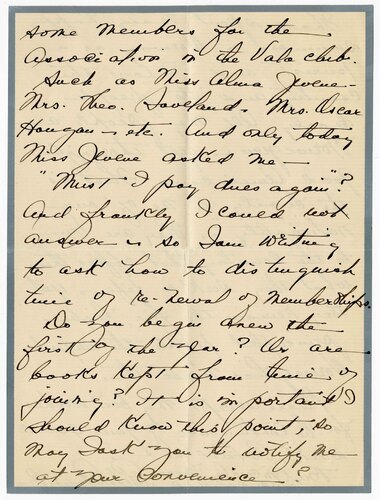 some members for the
Association in the Vala club.
Such as Miss Alma Jvene -
Mrs. Theo. Loveland. Mrs. Oscar
Hougan - etc. And only today
Miss Jvene asked me -
"Must I pay dues again"?
And frankly I could not
answer - so I am writing
to ask how to distinguish
time of re-newal of memberships.
Do you begin anew the
first of the year? Or are
books kept from time of
joining? It is important I
should know this point, so
may I ask you to notify me
at your convenience?